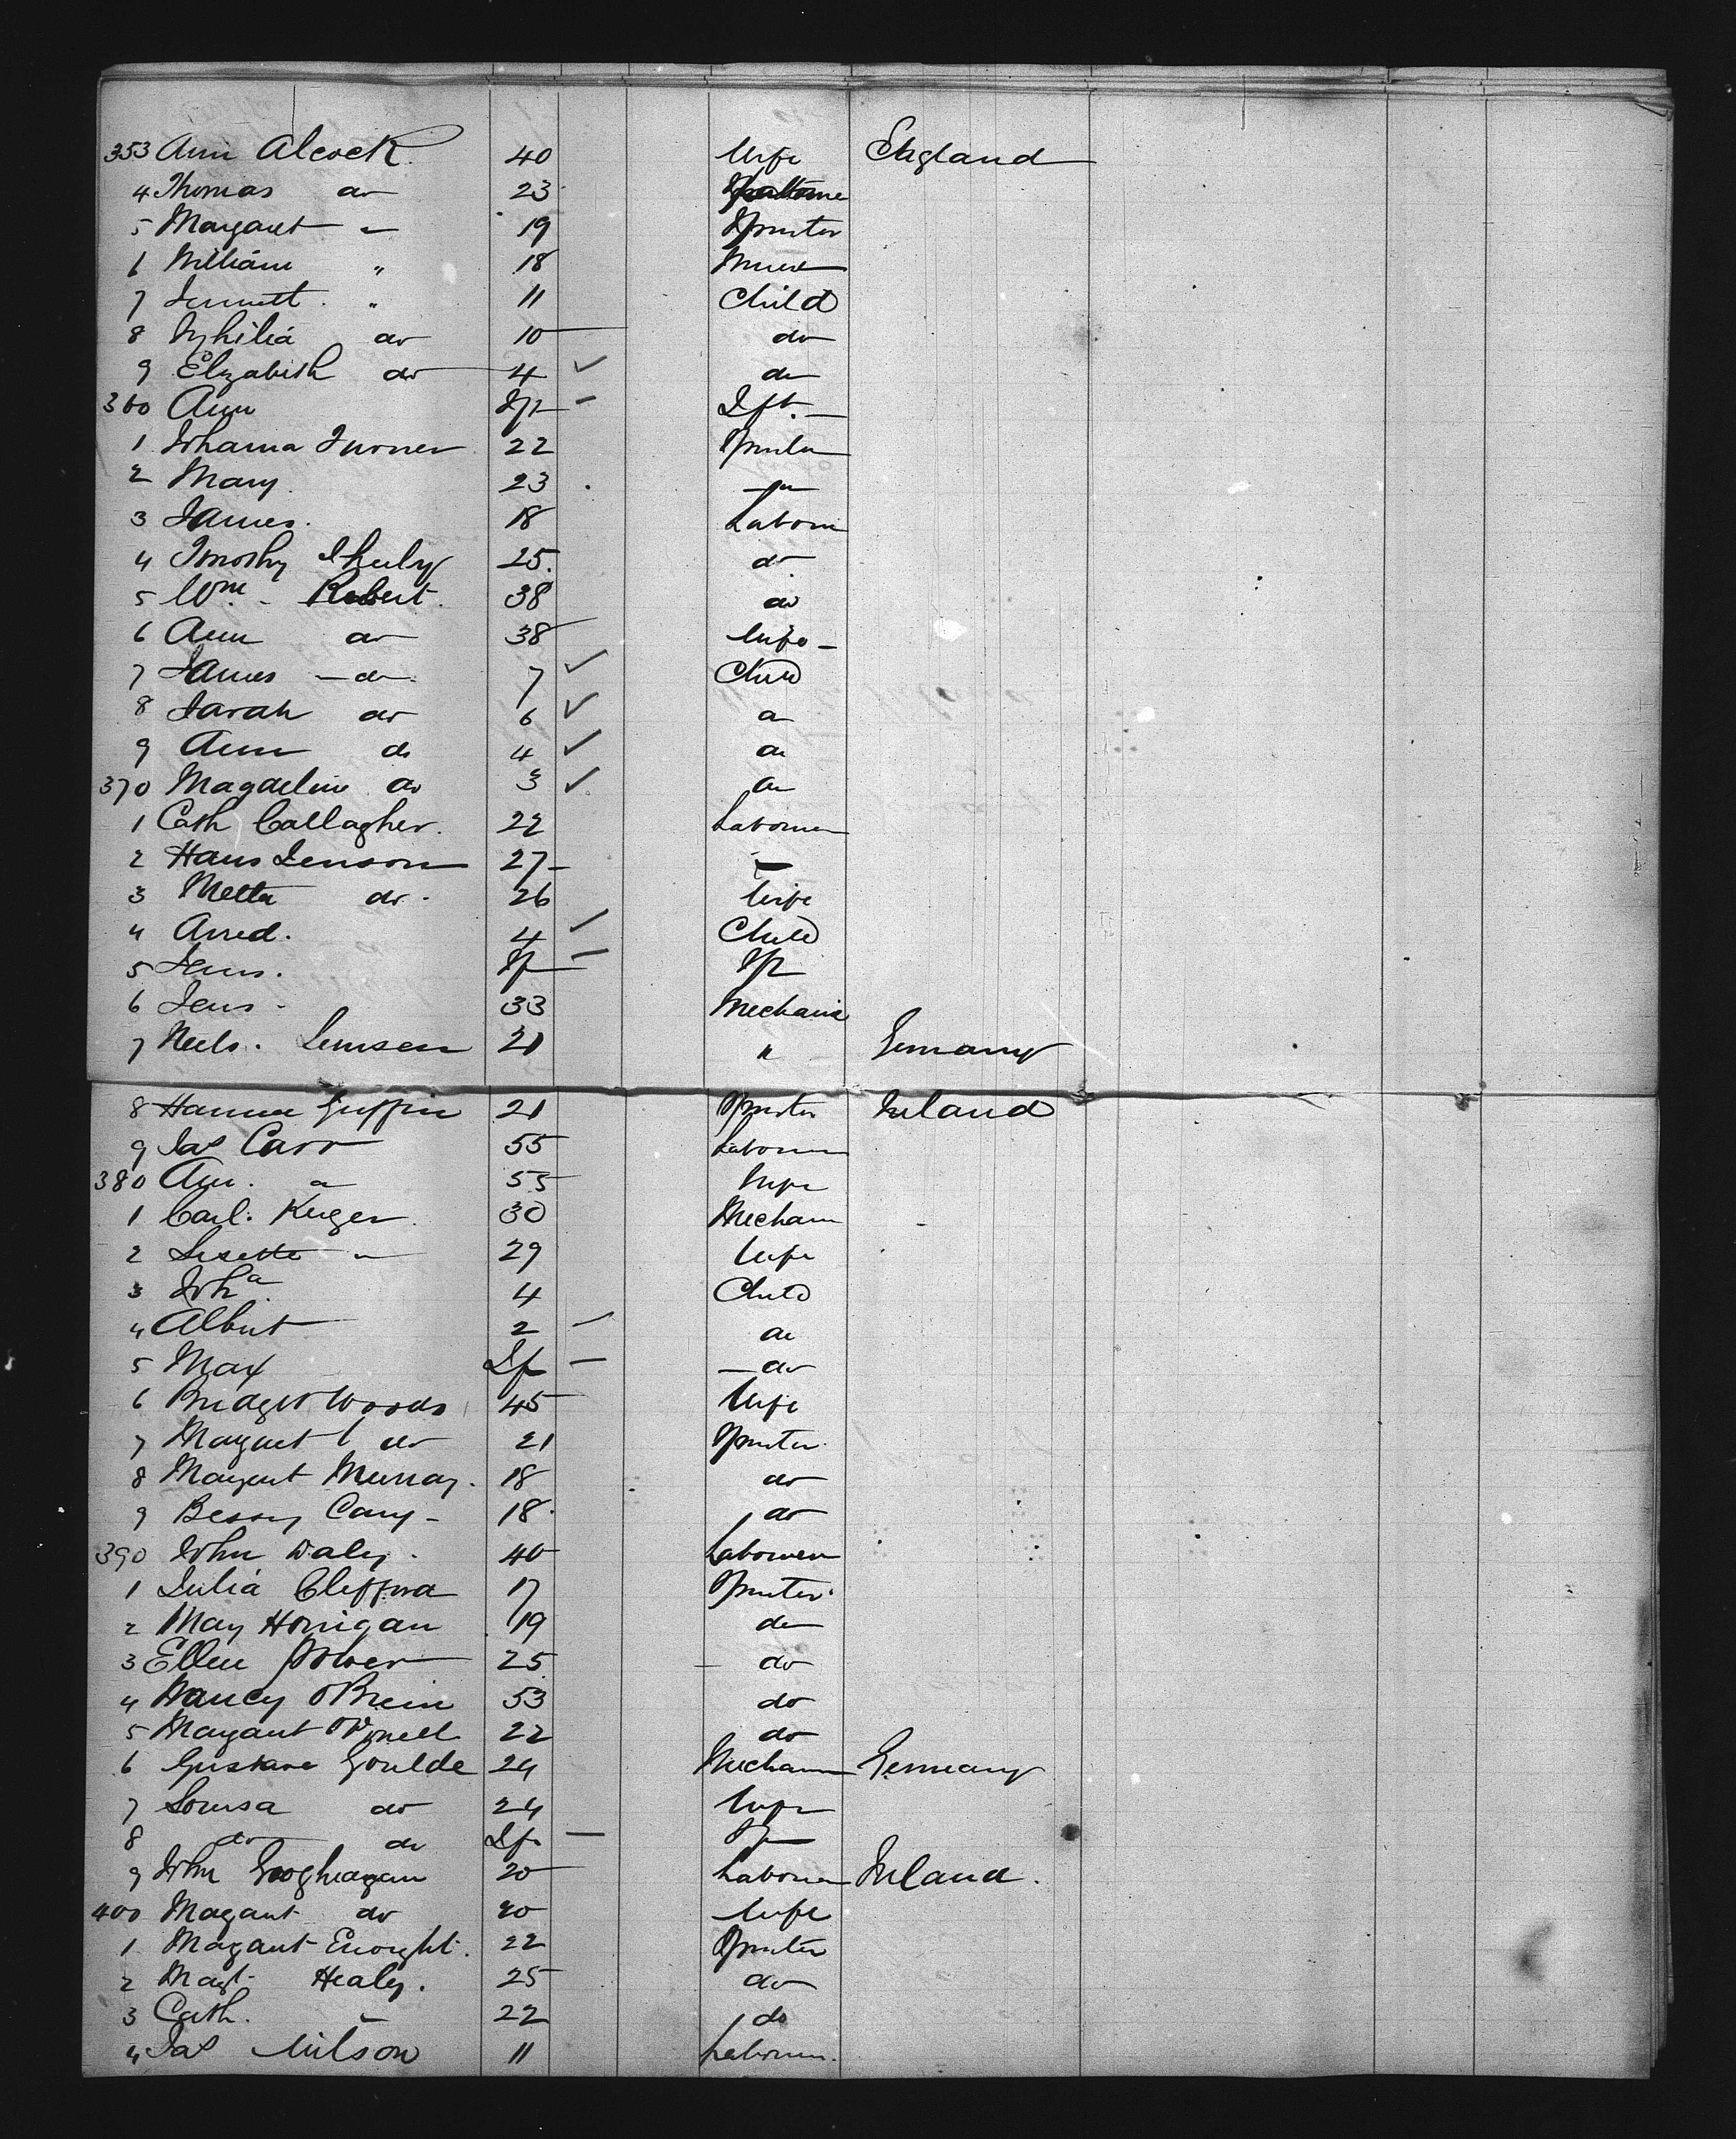 353 Ann Alcock 40 Wife England
4 Thomas do 23
5 Margaret " 19 Spinster
6 William " 18 Miner
7 Jennett " 11 Child
8 do 10 do
9 Elizabeth do 4 ✓ do
360 Ann Inf - Inft.
1 Johanna Turner 22 Spinster
2 Mary 23 do
3 James 18 Labourer
4 Timothy Sheehy 25 do
5 Wm. Robert 38 do
6 Ann do 38 Wife
7 James do 7 ✓ Child
8 Sarah do 6 ✓ do
9 Ann do 4 ✓ do
370 Magdeline do 3 ✓ do
1 Cath Callagher 22 Labourer
2 Hans Jenson 27
3 Metta do 26 Wife
4 4 ✓ Child
5 Jens Inf - Inf
6 Jens 33 Mechanic
7 Neels Jemsen 21 " Germany
8 Hanna Griffin 21 Spinster Ireland
9 Jas Carr 55 Labourer
380 Ann do 55 Wife
1 Carl Kuger 30 Mechan
2 Lisette " 29 Wife
3 Joha 4 Child
4 Albert 2 - do
5 Max Inf - do
6 Bridget Woods 45 Wife
7 Margaret do 21 Spinster
8 Margaret Murray 18 do
9 Bessy Cary 18 do
390 John Daly 40 Labourer
1 Julia Clifford 17 Spinster
2 Mary Horrigan 19 do
3 Ellen Power 25 do
4 Nancy OBrein 53 do
5 Margaret 22 do
6 Gustave Goulde 24 Mechan Germany
7 Louisa do 24 Wife
8 do do Inf - Inf
9 John Geogheagan 20 Labourer Ireland
400 Magaret do 20 Wife
1 Magaret Enright 22 Spinster
2 Magt Healy 25 do
3 Cath. " 22 do
4 Jas Wilson 11 Labourer